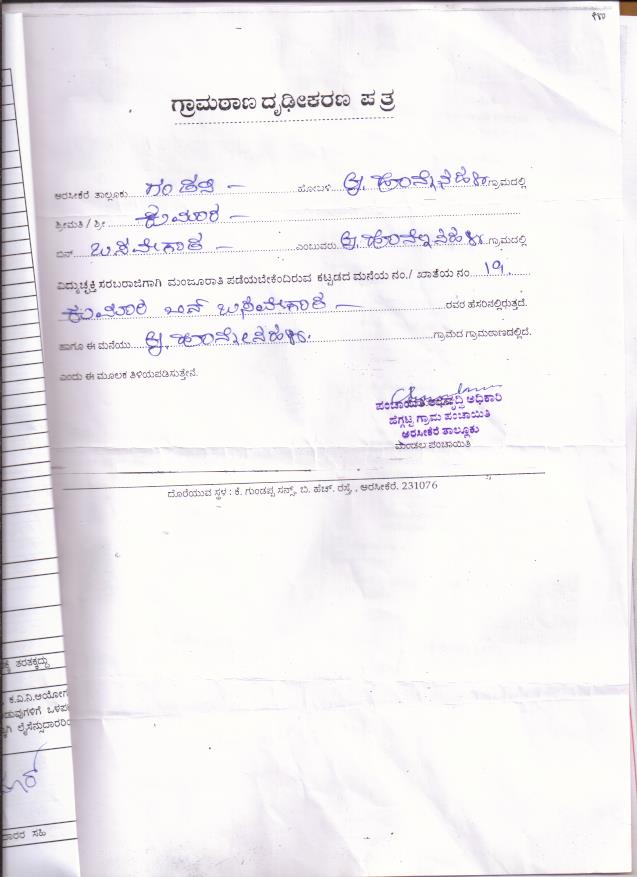 ೯೪೦
ಗ್ರಾಮಠಾಣ ದೃಢೀಕರಣ ಪತ್ರ
ಅರಸೀಕೆರೆ ತಾಲ್ಲೂಕು ಗಂಡಸಿ — ಹೋಬಳಿ ಗ್ರಾಮದಲ್ಲಿ
ಶ್ರೀಮತಿ / ಶ್ರೀ ಕುಮಾರ —
ಬಿನ್ ಬಸವೇಗೌಡ — ಎಂಬುವರು ಗ್ರಾಮದಲ್ಲಿ
ವಿದ್ಯುಚ್ಛಕ್ತಿ ಸರಬರಾಜಿಗಾಗಿ ಮಂಜೂರಾತಿ ಪಡೆಯಬೇಕೆಂದಿರುವ ಕಟ್ಟಡದ ಮನೆಯ ನಂ./ ಖಾತೆಯ ನಂ. 191
ಕುಮಾರ ಬಿನ್ ಬಸವೇಗೌಡ — ರವರ ಹೆಸರಿನಲ್ಲಿರುತ್ತದೆ.
ಹಾಗೂ ಈ ಮನೆಯು ಗ್ರಾಮದ ಗ್ರಾಮಠಾಣದಲ್ಲಿದೆ.
ಎಂದು ಈ ಮೂಲಕ ತಿಳಿಯಪಡಿಸುತ್ತೇನೆ.
ಪಂಚಾಯಿತಿ ಅಭಿವೃದ್ಧಿ ಅಧಿಕಾರಿ
ಹೆಗ್ಗಟ್ಟ ಗ್ರಾಮ ಪಂಚಾಯಿತಿ
ಅರಸೀಕೆರೆ ತಾಲ್ಲೂಕು
ಮಂಡಲ ಪಂಚಾಯಿತಿ
ದೊರೆಯುವ ಸ್ಥಳ : ಕೆ. ಗುಂಡಪ್ಪ ಸನ್ಸ್, ಬಿ. ಹೆಚ್. ರಸ್ತೆ, ಅರಸೀಕೆರೆ. 231076
ತರತಕ್ಕದ್ದು
ಕ.ವಿ.ನಿ.ಆಯೋಗ
ಲೈಸೆನ್ಸುದಾರರಿಂ
ದಾರರ ಸಹಿ